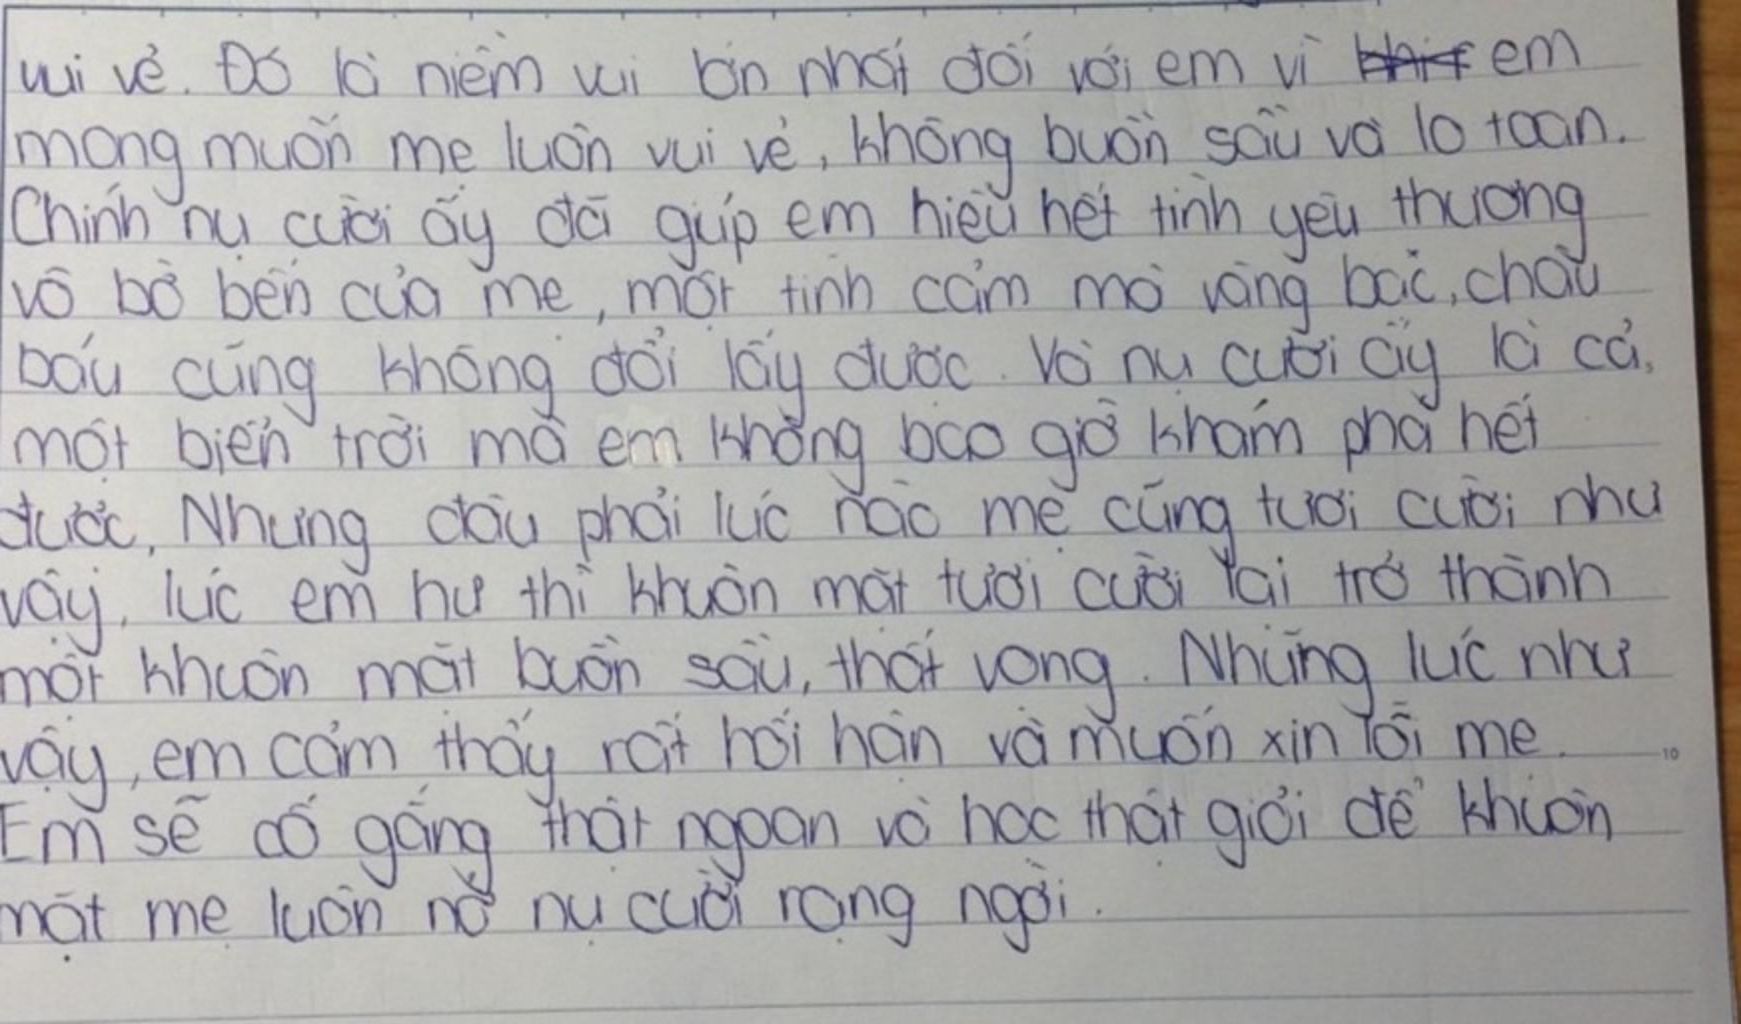 vui vẻ. Đó là niềm vui lớn nhất đối với em vì em
mong muốn mẹ luôn vui vẻ, không buồn sầu và lo toan.
Chính nụ cười ấy đã giúp em hiểu hết tình yêu thương
vô bờ bến của mẹ, một tình cảm mà vàng bạc, châu
báu cũng không đổi lấy được. Và nụ cười ấy là cả
một biển trời mà em không bao giờ khám phá hết
được, Nhưng đâu phải lúc nào mẹ cũng tươi cười như
vậy, lúc em hư thì khuôn mặt tươi cười lại trở thành
một khuôn mặt buồn sầu, thất vọng. Những lúc như
vậy, em cảm thấy rất hối hận và muốn xin lỗi mẹ.
Em sẽ cố gắng thật ngoan và học thật giỏi để khuôn
mặt mẹ luôn nở nụ cười rạng ngời.
10